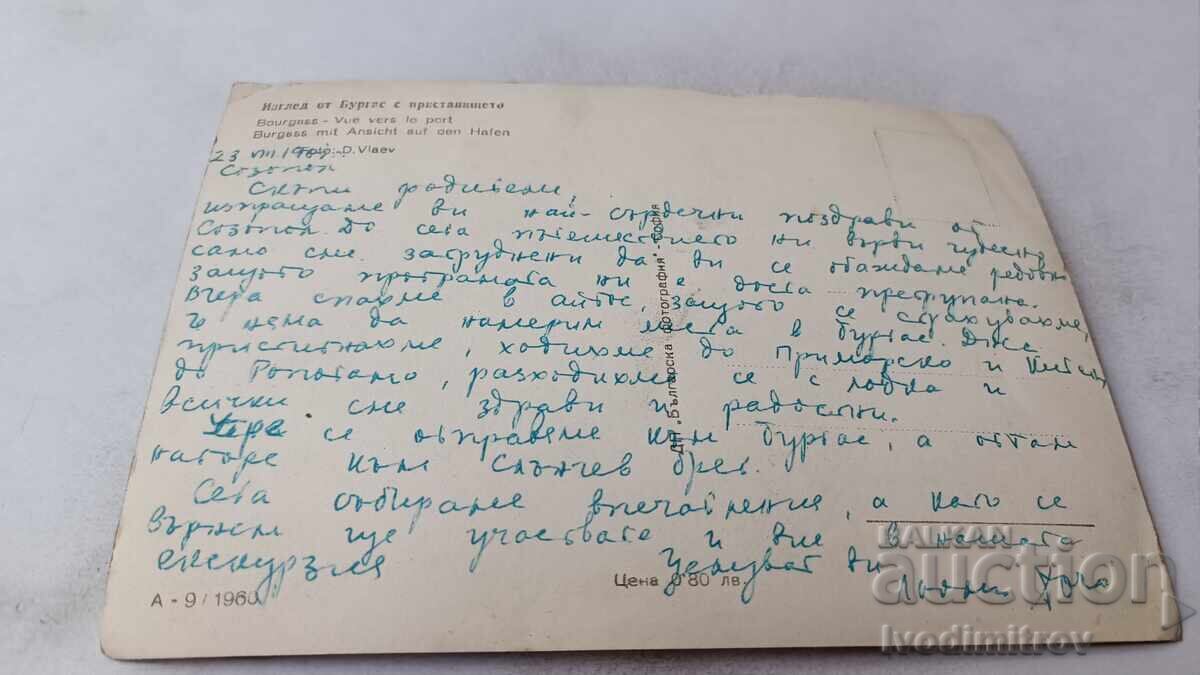 Изглед от Бургас с пристанището
Bourgass - Vue vers le port
Burgass mit Ansicht auf den Hafen
Foto: D. Vlaev
23 VIII
Созопол
Скъпи родители,
изпращаме ви най-сърдечни поздрави от
Созопол. До сега пътешествието ни върви чудесно,
само сме затруднени да ви се обаждаме редовно
защото програмата ни е доста претрупана.
Вчера спахме в Айтос, защото се страхувахме,
че няма да намерим места в Бургас. Днес
пристигнахме, ходихме до Приморско и Китен,
до Ропотамо, разходихме се с лодка и
всички сме здрави и радостни.
Утре се отправяме към Бургас, а оттам
нагоре към Слънчев бряг.
Сега събираме впечатления, а като се
върнем ще участвате и вие в нашата
екскурзия
Целуват ви
ДП „Българска фотография" - София
Цена 0·80 лв.
А - 9 / 1960
BALKAN
auction
ivodimitrov